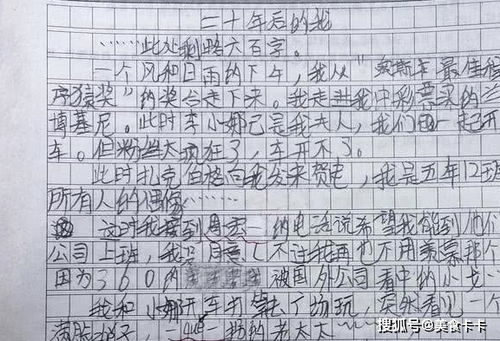 二十年后的我
……此处剩略六百字。
一个风和日雨的下午,我从“奥斯卡最佳程
序猿奖”的奖台走下来。我走进我中彩票买的兰
博基尼。此时李小娜已是我夫人,我们一起开
车。但粉丝太疯狂了,车开不了。
此时扎克伯格向我发来贺电,我是五年12班
所有人的偶像……
这时我接到周宏一的电话说希望我能到他们
公司上班,我
不过我再也不用羡慕那个
因为360的 被国外公司看中的小
我和小娜开车 去 玩,突然看见一个
满脸 子, 的老太太
搜狐号@美食卡卡